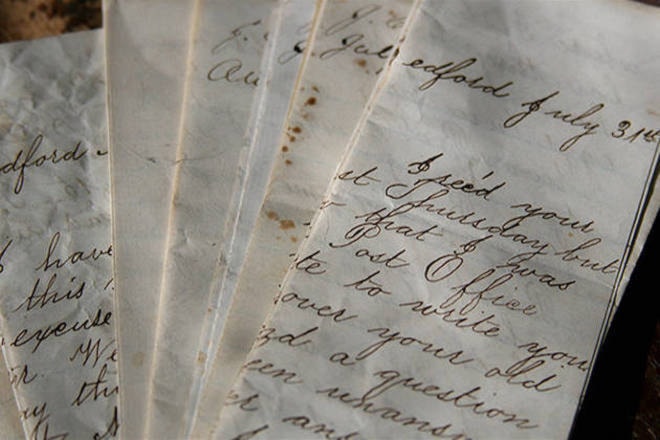 dford
I have
this
excuse
r. We
my th
J.
Au
J. J.
Jul
edford July 31st
I rec'd your
st Thursday but
that I was
Post Office
te to write you
over your old
d a question
een unans
er an